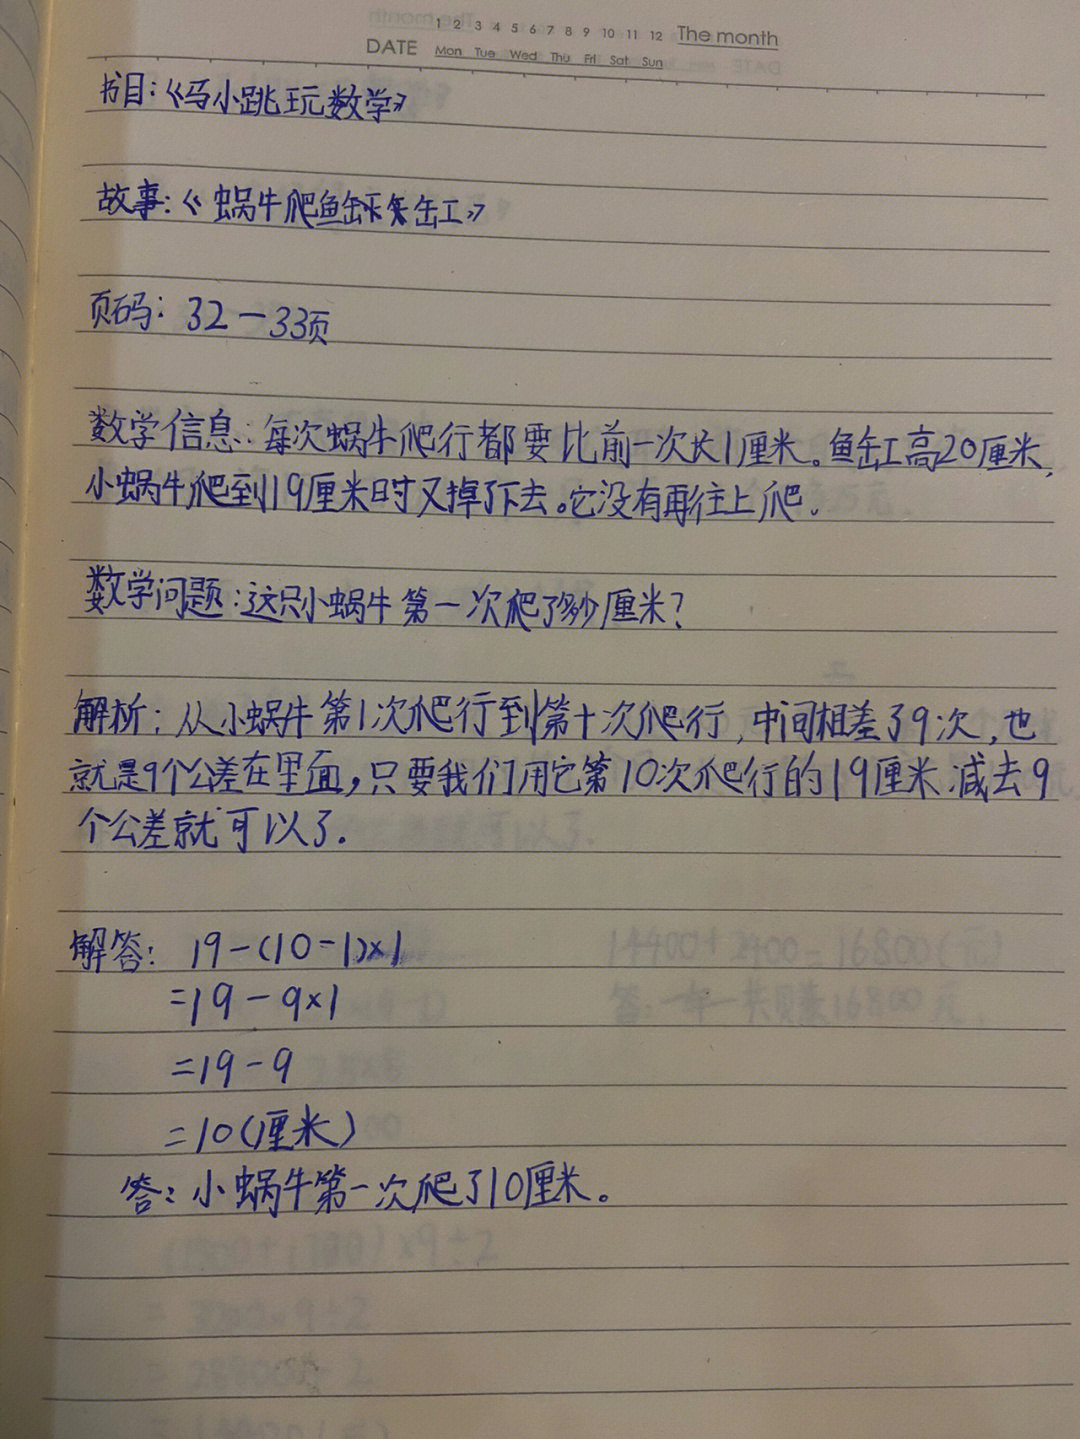 1 2 3 4 5 6 7 8 9 10 11 12 The month
DATE Mon Tue Wed Thu Fri Sat Sun
书目:《马小跳玩数学》
故事:《蜗牛爬鱼缸》
页码:32—33页
数学信息:每次蜗牛爬行都要比前一次长1厘米。鱼缸高20厘米,
小蜗牛爬到19厘米时又掉了下去。它没有再往上爬.
数学问题:这只小蜗牛第一次爬了多少厘米?
解析:从小蜗牛第1次爬行到第十次爬行,中间相差了9次,也
就是9个公差在里面,只要我们用它第10次爬行的19厘米减去9
个公差就可以了.
解答: 19-(10-1)×1
=19-9×1
=19-9
=10(厘米)
答:小蜗牛第一次爬了10厘米。
14400+2400=16800(元)
答:一年一共赚16800元.